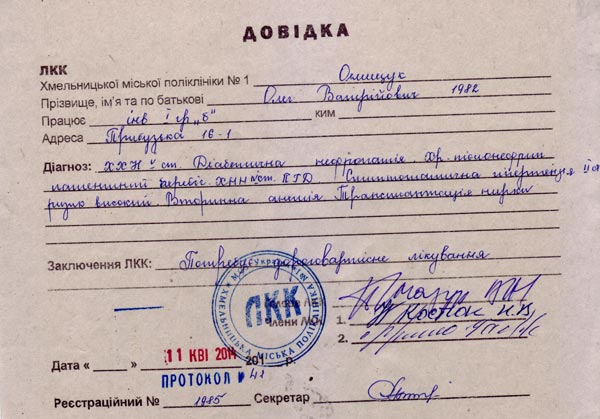 ДОВІДКА
ЛКК
Хмельницької міської поліклініки № 1 Онищук
Прізвище, ім'я та по батькові Олег Валерійович 1982
Працює інв І гр „б" ким
Адреса Прибузька 16-1
Діагноз: ХХН V ст. Діабетична нефропатія. Хр. пієлонефрит
латентний перебіг. ХНН ст. ПГД Симптоматична гіпертензія II ст
ризик високий. Вторинна анемія Трансплантація нирки
Заключення ЛКК: Потребує дороговартісне лікування
Голова ЛКК
Члени ЛКК 1. Костюк Н.В.
2.
ХМЕЛЬНИЦЬКА МІСЬКА ПОЛІКЛІНІКА №1
ЛКК
Дата « » 11 КВІ 2014 201 р.
ПРОТОКОЛ № 42
Реєстраційний № 1985 Секретар